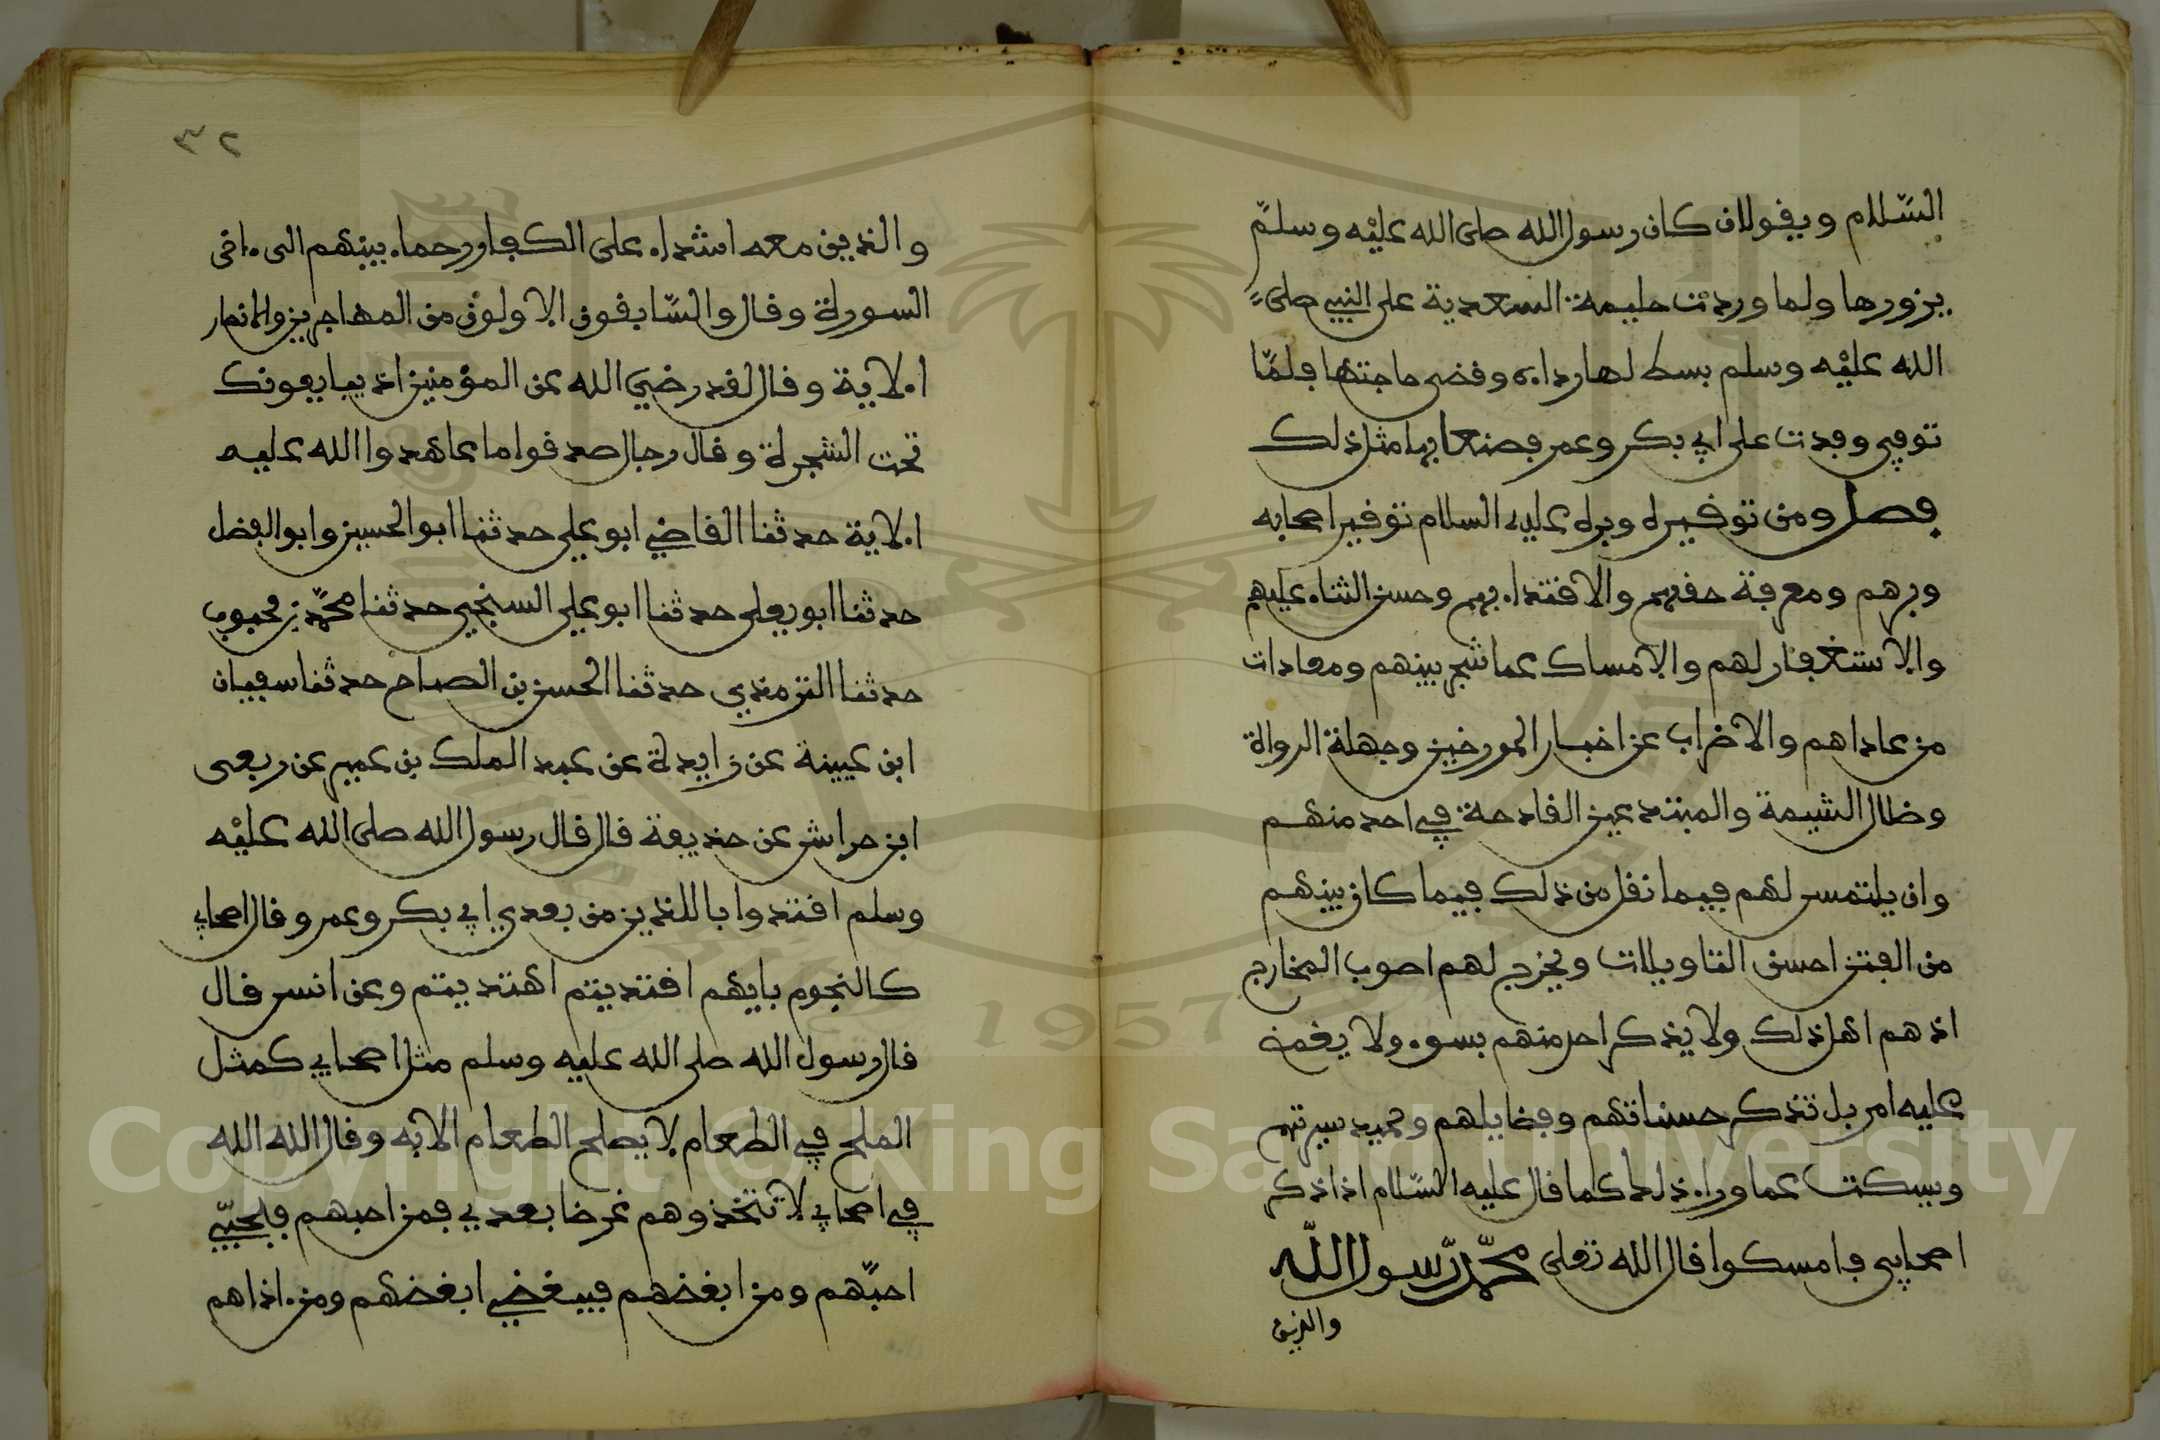 السّلام ويقولان كان رسول الله صلى الله عليْه وسلمّ
يزورها ولما وردت حليمة السعدية على النبي صلى
الله عليْه وسلم بسط لها رداءه وقضى حاجتها فلمّا
توفي وفدت على ابي بكر وعمر فصنعا بها مثل ذلك
فصل ومن توقيره وبره عليه السلام توقير اصحابه
وبرهم ومعرفة حقهم والاقتداء بهم وحسن الثناء عليهم
والاستغفار لهم والامساك عما شجر بينهم ومعادات
من عاداهم والاضراب عن اخبار المورخين وجهلة الرواة
وضلال الشيعة والمبتدعين القادحة في احد منهم
وان يلتمس لهم فيما نقل من ذلك فيما كان بينهم
من الفتن احسن التاويلات ويخرج لهم اصوب المخارج
اذ هم اهل ذلك ولا يذكر احد منهم بسوء ولا يغمض
عليه امر بل تذكر حسناتهم وفضايلهم وحميد سيرتهم
ويسكت عما وراء ذلك كما قال عليه السّلام اذا ذكر
اصحابي فامسكوا قال الله تعلى محمّد رّسول اللّه
والذين
٣٢
والذين معه اشداء على الكفار رحماء بينهم الى ءاخر
السورة وقال والسّابقون الاولون من المهاجرين والانصار
الاية وقال لقد رضي الله عن المؤمنين اذ يبايعونك
تحت الشجرة وقال رجال صدقوا ما عاهدوا الله عليه
الاية حدثنا القاضي ابو علي حدثنا ابو الحسين وابو الفضل
حدثنا ابو يعلى حدثنا ابو علي السنجي حدثنا محمّد بن محبوب
حدثنا الترمذي حدثنا الحسن بن الصباح حدثنا سفيان
ابن عيينة عن زايدة عن عبد الملك بن عمير عن ربعى
ابن حراش عن حذيفة قال قال رسول الله صلى الله عليْه
وسلم اقتدوا باللذين من بعدي ابي بكر وعمر وقال اصحابي
كالنجوم بايهم اقتديتم اهتديتم وعن انس قال
قال رسول الله صلى الله عليه وسلم مثل اصحابي كمثل
الملح في الطعام لا يصلح الطعام الا به وقال الله الله
في اصحابي لا تتخذوهم غرضا بعدي فمن احبهم فبحبّي
احبّهم ومن ابغضهم فببغضي ابغضهم ومن ءاذاهم
Copyright © King Saud University
1957